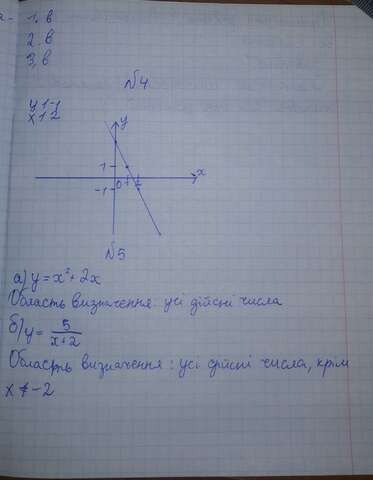 1. в
2. в
3. в
№4
y 1 -1
x 1 2
y
1
x
-1
0 1 2
№5
а) y = x² + 2x
Область визначення: усі дійсні числа
б) y = 5/(x+2)
Область визначення: усі дійсні числа, крім
x ≠ -2